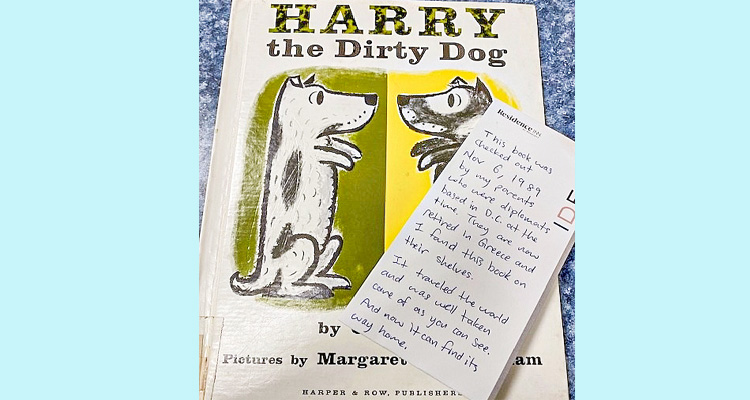 HARRY
the Dirty Dog
Residence INN
This book was
checked out
Nov 6, 1989
by my parents
who were diplomats
based in D.C. at the
time. They are now
retired in Greece and
I found this book on
their shelves.
It traveled the world
and was well taken
care of as you can see.
And now it can find its
way home.
by
Pictures by Margaret
HARPER & ROW, PUBLISHERS